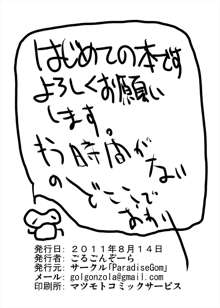 はじめての本です
よろしくお願い
します。
もう時間がな
いのでここで
おわり
発行日: 2011年8月14日
発行者: ごるごんぞーら
発行元: サークル「ParadiseGom」
メール: golgonzola@gmail.com
印刷所: マツモトコミックサービス